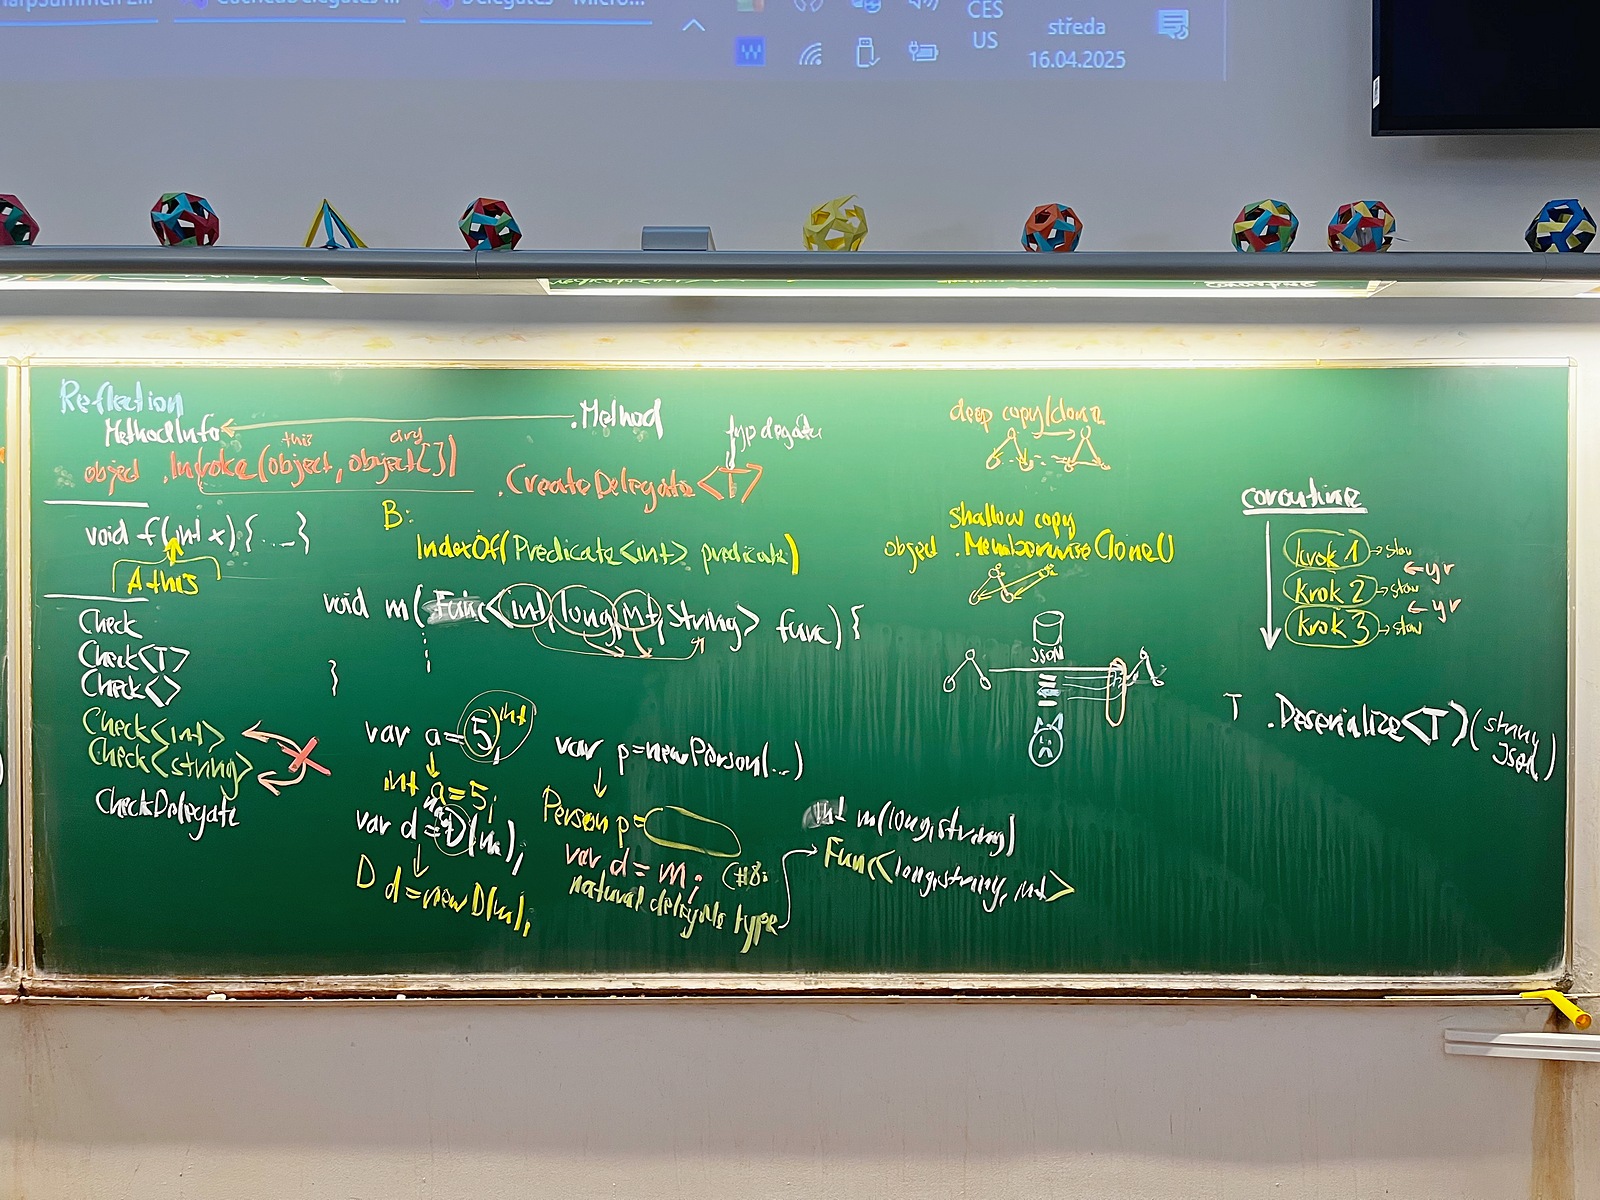 CES
US
středa
16.04.2025
Reflection
MethodInfo
.Method
this
args
object .Invoke(object, object[])
typ delegáta
.CreateDelegate<T>
void f(int x) { ... }
A this
B:
IndexOf(Predicate<int> predicate)
void m(Func<int, long, int, string> func) {
}
Check
Check<T>
Check<>
Check<int>
Check<string>
CheckDelegate
var a = 5;
int
int a = 5;
var d = new D(m);
D d = new D(m);
var p = new Person(...)
Person p =
var d = m;
natural delegate type
int m(long, string)
Func<long, string, int>
deep copy/clone
shallow copy
object .MemberwiseClone()
JSON
coroutine
krok 1 → stav
← yr
krok 2 → stav
← yr
krok 3 → stav
T .Deserialize<T>(string
json)